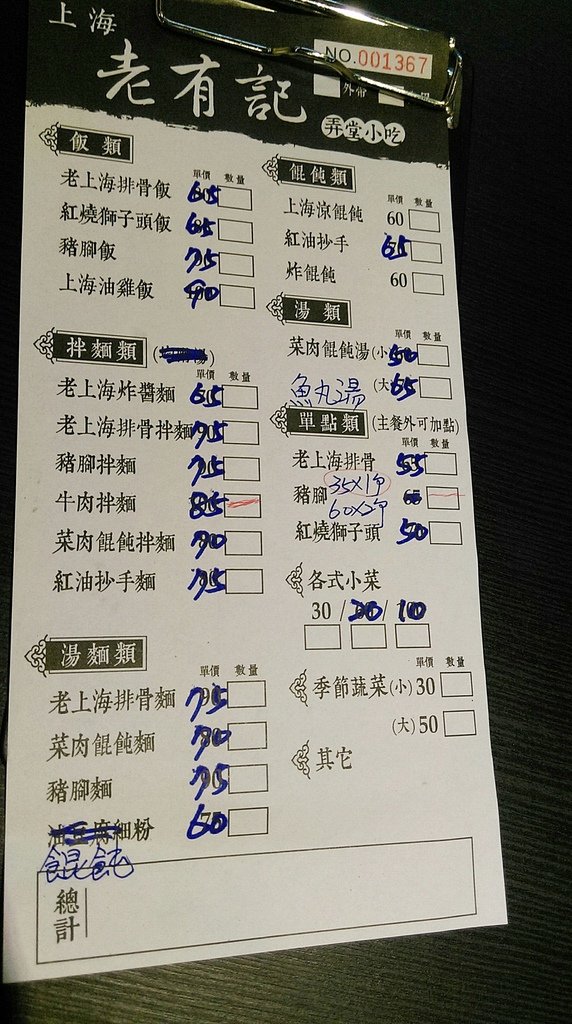 上海
老有記
弄堂小吃
NO.001367
外帶
飯類
單價 數量
老上海排骨飯 65
紅燒獅子頭飯 65
豬腳飯 75
上海油雞飯 90
拌麵類
單價 數量
老上海炸醬麵 65
老上海排骨拌麵 75
豬腳拌麵 75
牛肉拌麵 85
菜肉餛飩拌麵 70
紅油抄手麵 75
湯麵類
單價 數量
老上海排骨麵 75
菜肉餛飩麵 70
豬腳麵 75
油豆腐細粉 60
餛飩
總計
餛飩類
單價 數量
上海涼餛飩 60
紅油抄手 65
炸餛飩 60
湯類
單價 數量
菜肉餛飩湯(小) 50
魚丸湯 (大) 65
單點類 (主餐外可加點)
單價 數量
老上海排骨 55
豬腳 35X1個 65
60X2個
紅燒獅子頭 50
各式小菜
30 / /
單價 數量
季節蔬菜(小) 30
(大) 50
其它